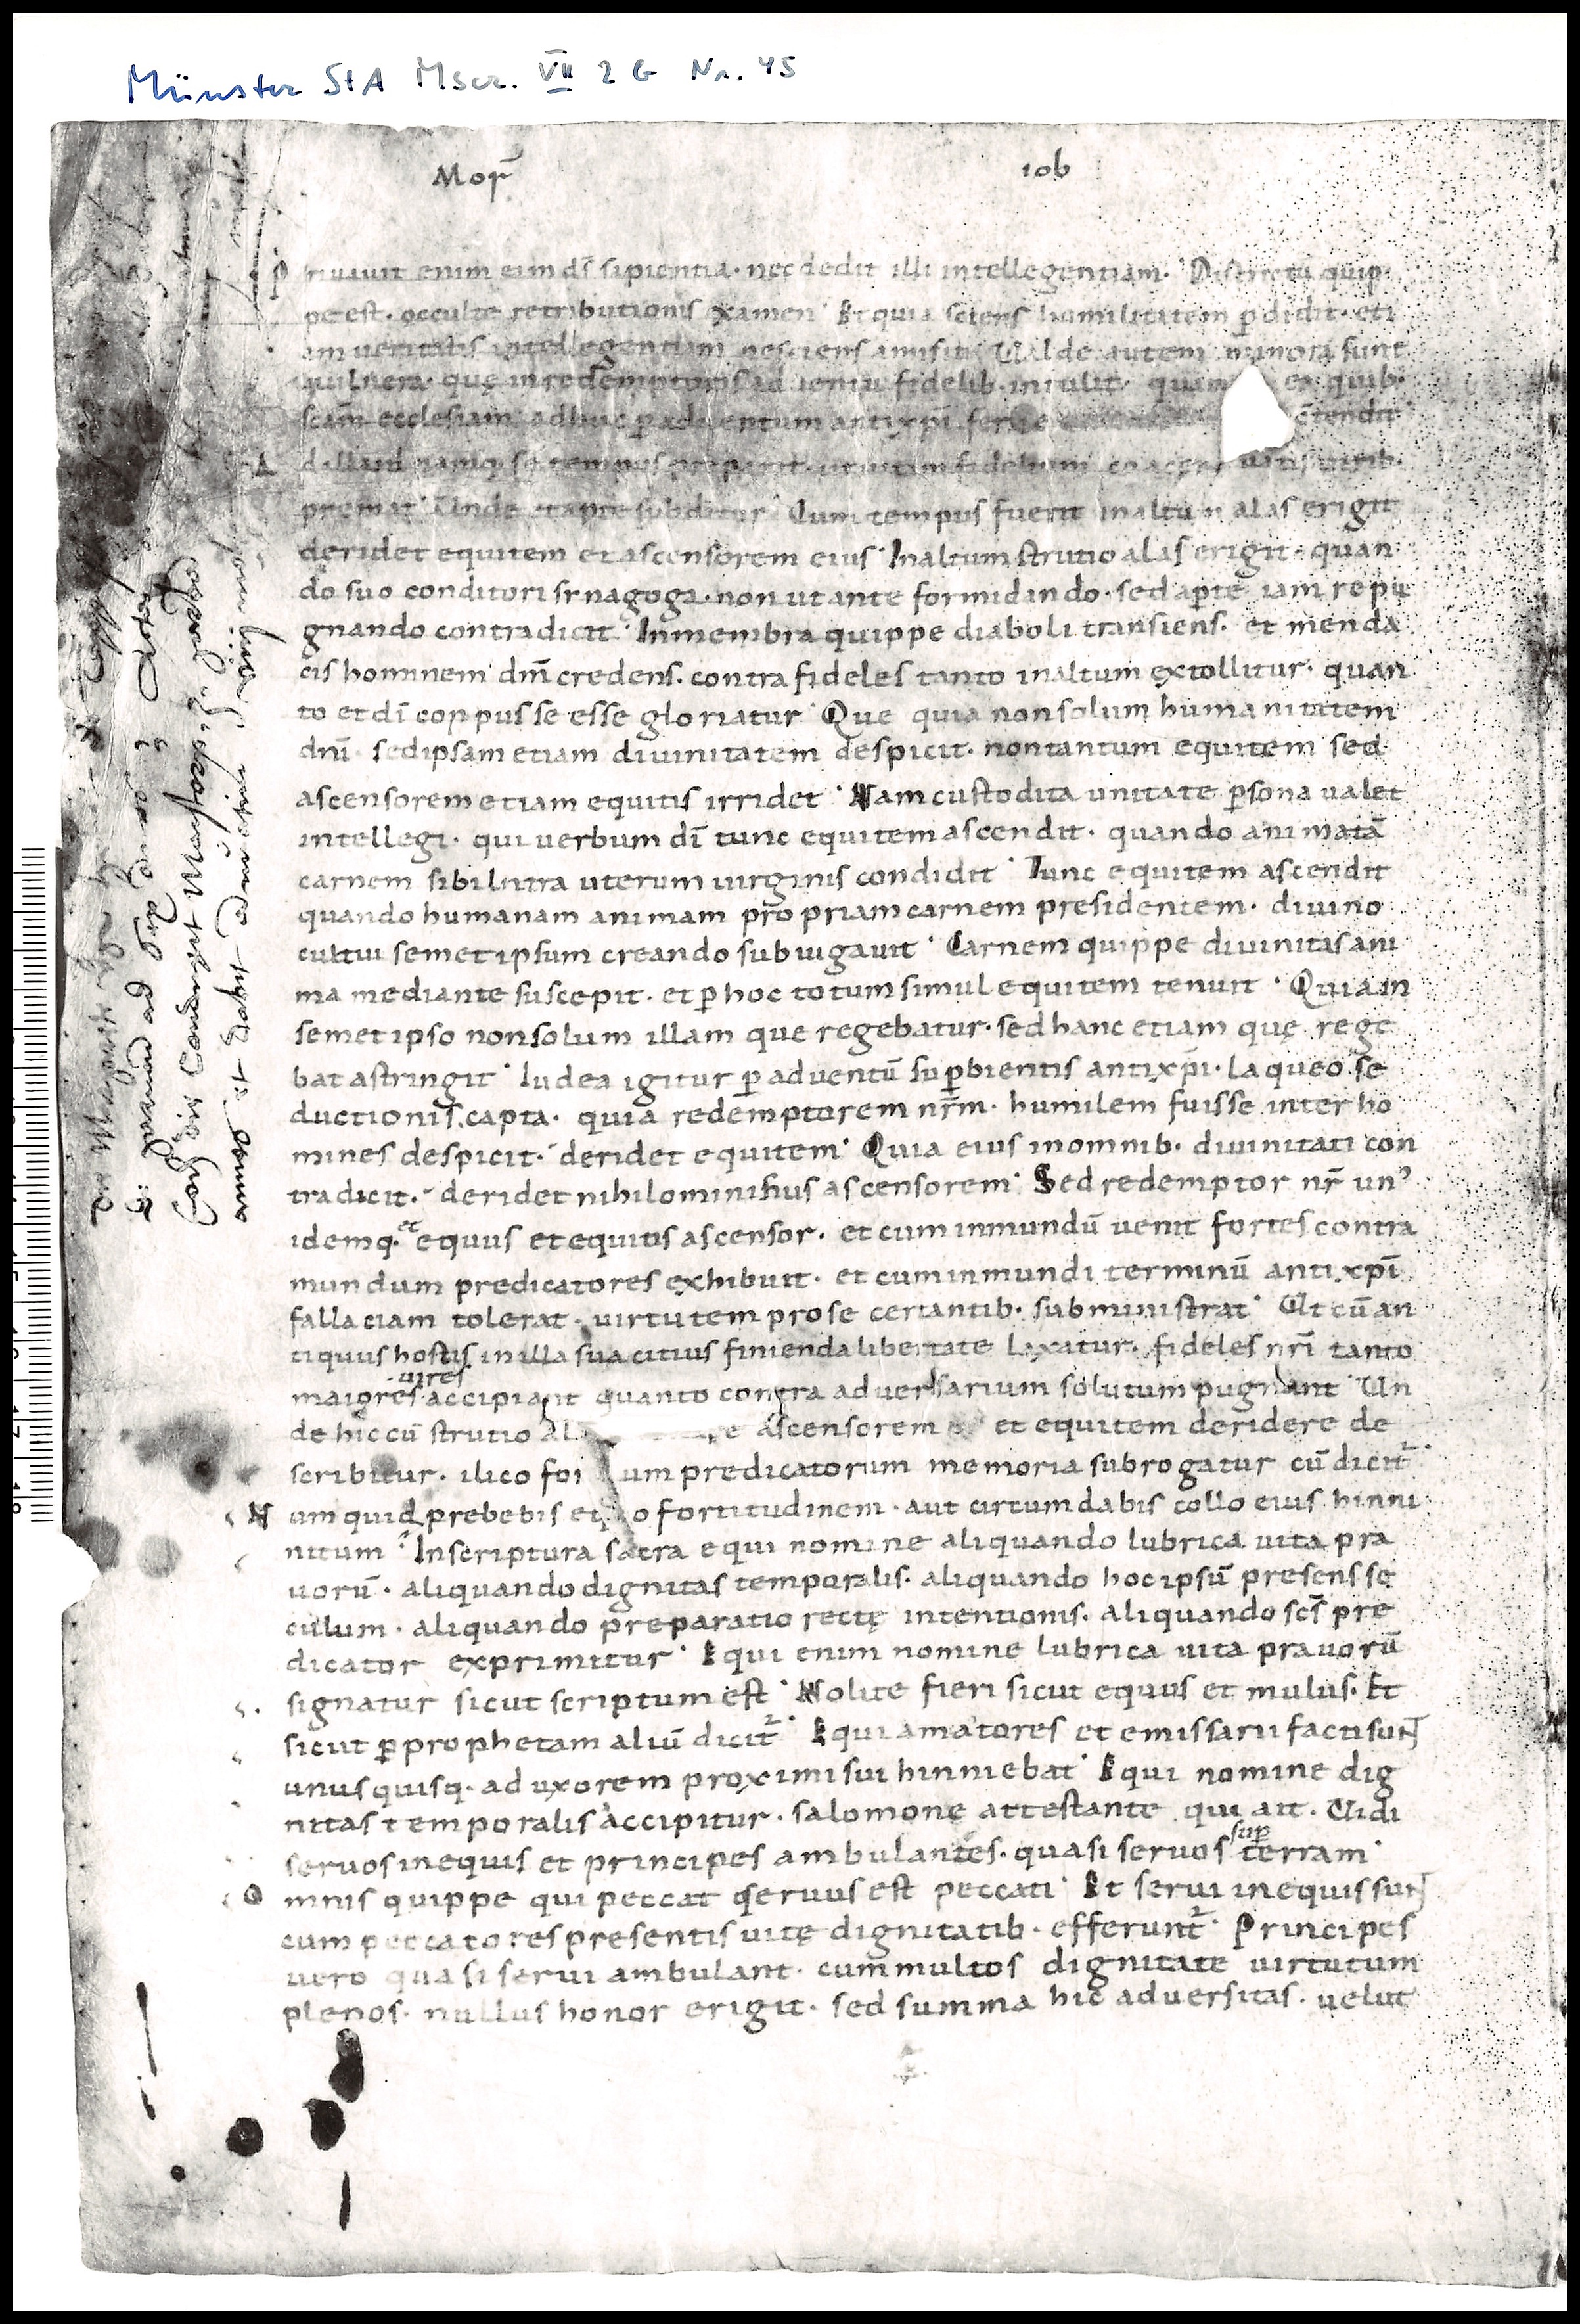 Münster StA Mscr. VII 2 G Nr. 45
Mor̄ iob
P rivavit enim eum ds̄ sapientia· nec dedit illi intellegentiam· Districtū quip
pe est· occulte retributionis examen· Et quia sciens humilitatem p̄didit· eti
am veritatis intellegentiam nesciens amisit· Valde autem minora sunt
vulnera· quę in redemptoris adventu fidelib· intulit· ex quib·
scam̄ ecclesiam adhuc p̄ adventum antixp̄i ferire c̄tendit
A d illud namq· se tempus preparat· ut vitam fidelium virib·
premat· Unde et apte subditur· Cum tempus fuerit in altum alas erigit
deridet equitem et ascensorem eius· In altum strutio alas erigit· quan
do suo conditori synagoga· non ut ante formidando· sed ap̄te iam repu
gnando contradicit· In membra quippe diaboli transiens· et menda
cis hominem dm̄ credens· contra fideles tanto in altum extollitur· quan
to et dī corpus se esse gloriatur· Que quia non solum humanitatem
dnī· sed ipsam etiam divinitatem despicit· non tantum equitem sed
ascensorem etiam equitis irridet· Nam custodita unitate p̄sona valet
intellegi· qui verbum dī tunc equitem ascendit· quando animatā
carnem sibi intra uterum virginis condidit· Tunc equitem ascendit
quando humanam animam propriam carnem presidentem· divino
cultui semet ipsum creando subiugavit· Carnem quippe divinitas ani
ma mediante suscepit· et p̄ hoc totum simul equitem tenuit· Quia in
semet ipso non solum illam que regebatur· sed hanc etiam quę rege
bat astringit· Iudea igitur p̄ adventū sup̄bientis antixp̄i· laqueo se
ductionis capta· quia redemptorem nr̄m· humilem fuisse inter ho
mines despicit· deridet equitem· Quia eius in omnib· divinitati con
tradicit· deridet nihilominihus ascensorem· Sed redemptor nr̄ un᾽
idemq· et equus et equitis ascensor· et cum in mundū venit fortes contra
mundum predicatores exhibuit· et cum in mundi terminū antixp̄i
fallaciam tolerat· virtutem pro se certantib· subministrat· Ut cū an
tiquus hostis in illa sua citius finienda libertate laxatur· fideles nr̄i tanto
maiores vires accipiant quanto contra adversarium solutum pugnant· Un
de hic cū strutio al ascensorem et equitem deridere de
scribitur· ilico for um predicatorum memoria subrogatur cū dicit᷑·
N umquid prebebis eq o fortitudinem· aut circumdabis collo eius hinni
nitum· In scriptura sacra equi nomine aliquando lubrica vita pra
vorū· aliquando dignitas temporalis· aliquando hoc ipsū presens sę
culum· aliquando preparatio rectę intentionis· aliquando scs̄ pre
dicator exprimitur· Equi enim nomine lubrica vita pravorū
signatur sicut scriptum est· Nolite fieri sicut equus et mulus· Et
sicut p̄ prophetam aliū dicit᷑· Equi amatores et emissarii facti sunt
unusquisq· ad uxorem proximi sui hinniebat· Equi nomine dig
nitas temporalis accipitur· salomone attestante qui ait· Vidi
servos in equis et principes ambulantes· quasi servos sup̄ terram·
O mnis quippe qui peccat servus est peccati· Et servi in equis sunt
cum peccatores presentis vitę dignitatib· efferunt᷑· Principes
vero quasi servi ambulant· cum multos dignitate virtutum
plenos· nullus honor erigit· sed summa hic adversitas· velut